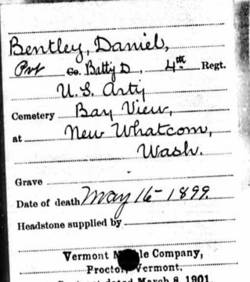 Bentley, Daniel,
Pvt Co. Batty D, 4th Regt.
U.S. Arty
Cemetery Bay View,
at New Whatcom,
Wash.
Grave
Date of death May 16-1899.
Headstone supplied by
Vermont Company,
Proctor, Vermont.
dated March 8, 1901.